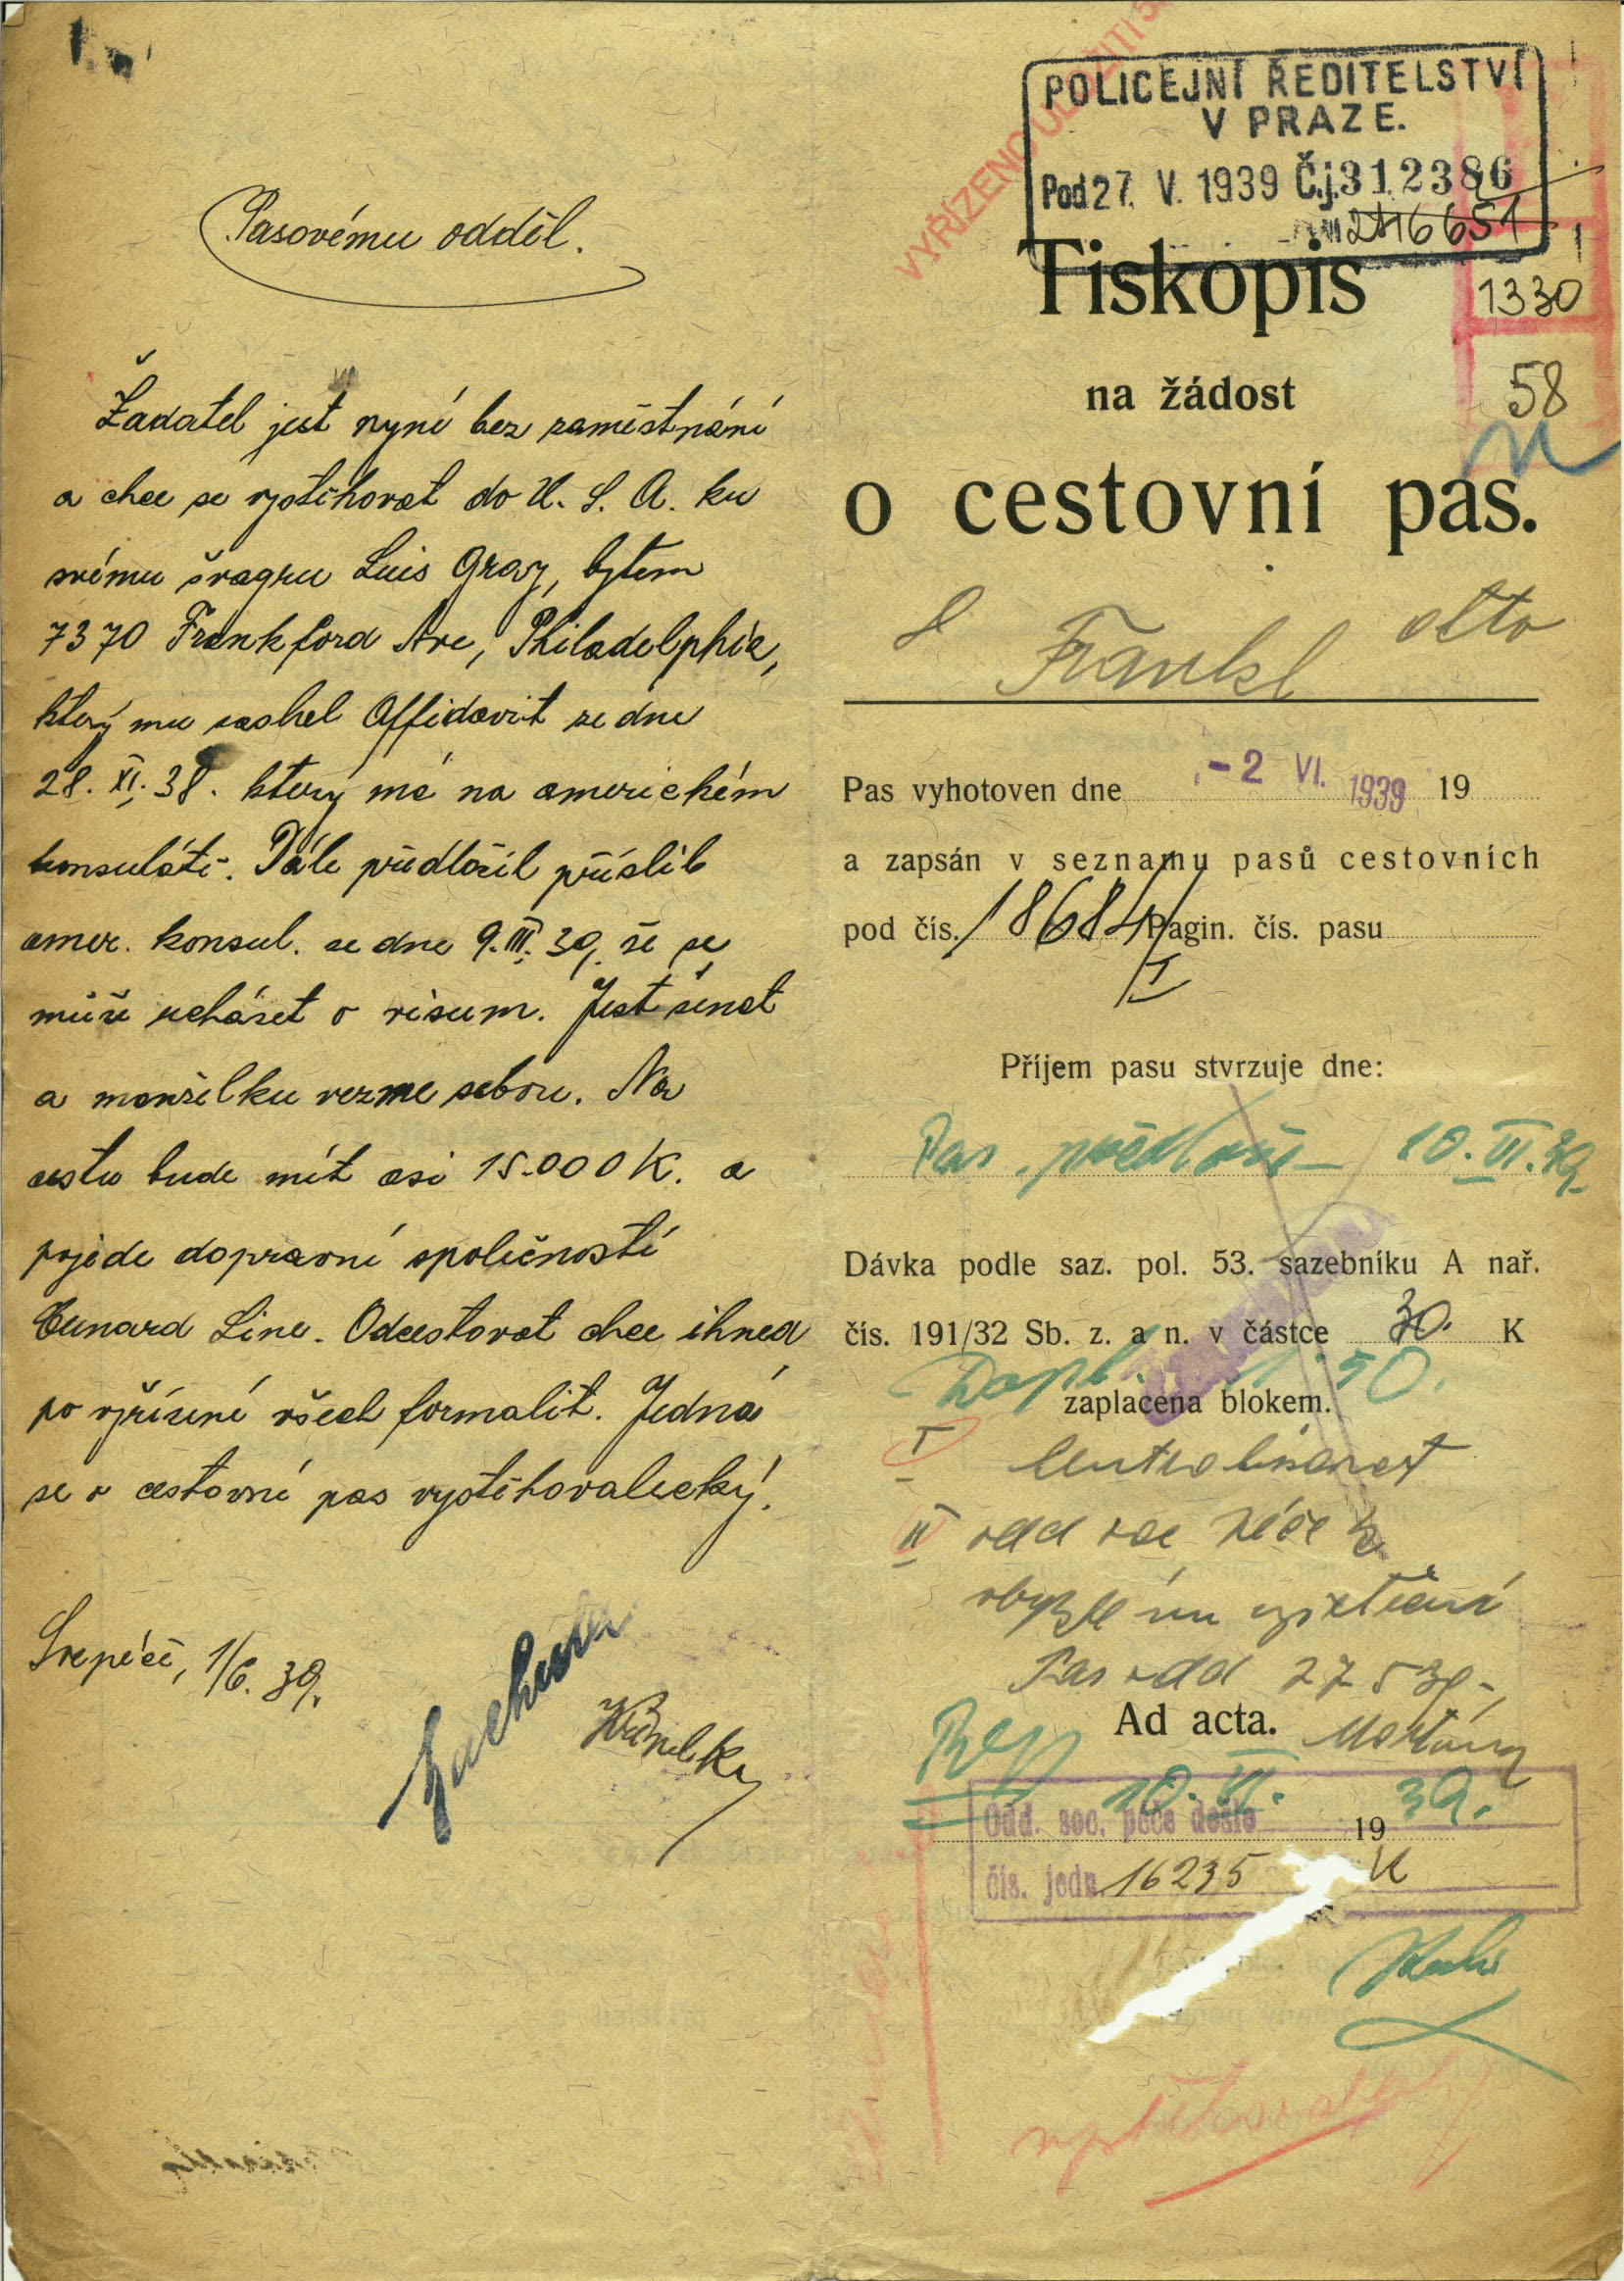 Pasovému odděl.
Žadatel jest nyní bez zaměstnání
a chce se vystěhovat do U. S. A. ku
svému švagru Luis Gray, bytem
7370 Frankford Ave, Philadelphia,
který mu zaslal Affidavit ze dne
28. XI. 38. který má na americkém
konsulátě. Dále předložil příslib
amer. konsul. ze dne 9. III. 39. že se
může ucházet o visum. Jest ženat
a manželku vezme sebou. Na
cestu bude mít asi 15.000 K. a
pojede dopravní společností
Cunard Line. Odcestovat chce ihned
po vyřízení všech formalit. Jedná
se o cestovní pas vystěhovalecký!
1/6. 39.
VYŘÍZENO
POLICEJNÍ ŘEDITELSTVÍ
V PRAZE.
Pod 27. V. 1939 Č.j. 312386
216651
1330
58
Tiskopis
na žádost
o cestovní pas.
Frankl Otto
Pas vyhotoven dne - 2 VI. 1939 19
a zapsán v seznamu pasů cestovních
pod čís. 18684/I Pagin. čís. pasu
Příjem pasu stvrzuje dne:
Pas předlož 10. VI. 39
Dávka podle saz. pol. 53. sazebníku A nař.
čís. 191/32 Sb. z. a n. v částce 30. K
Dopl. 50.
zaplacena blokem.
I
II odd soc péče k
Pas odd 27 5 39
Ad acta.
10. VI. 1939.
Odd. soc. péče došlo
čís. jedn. 16235